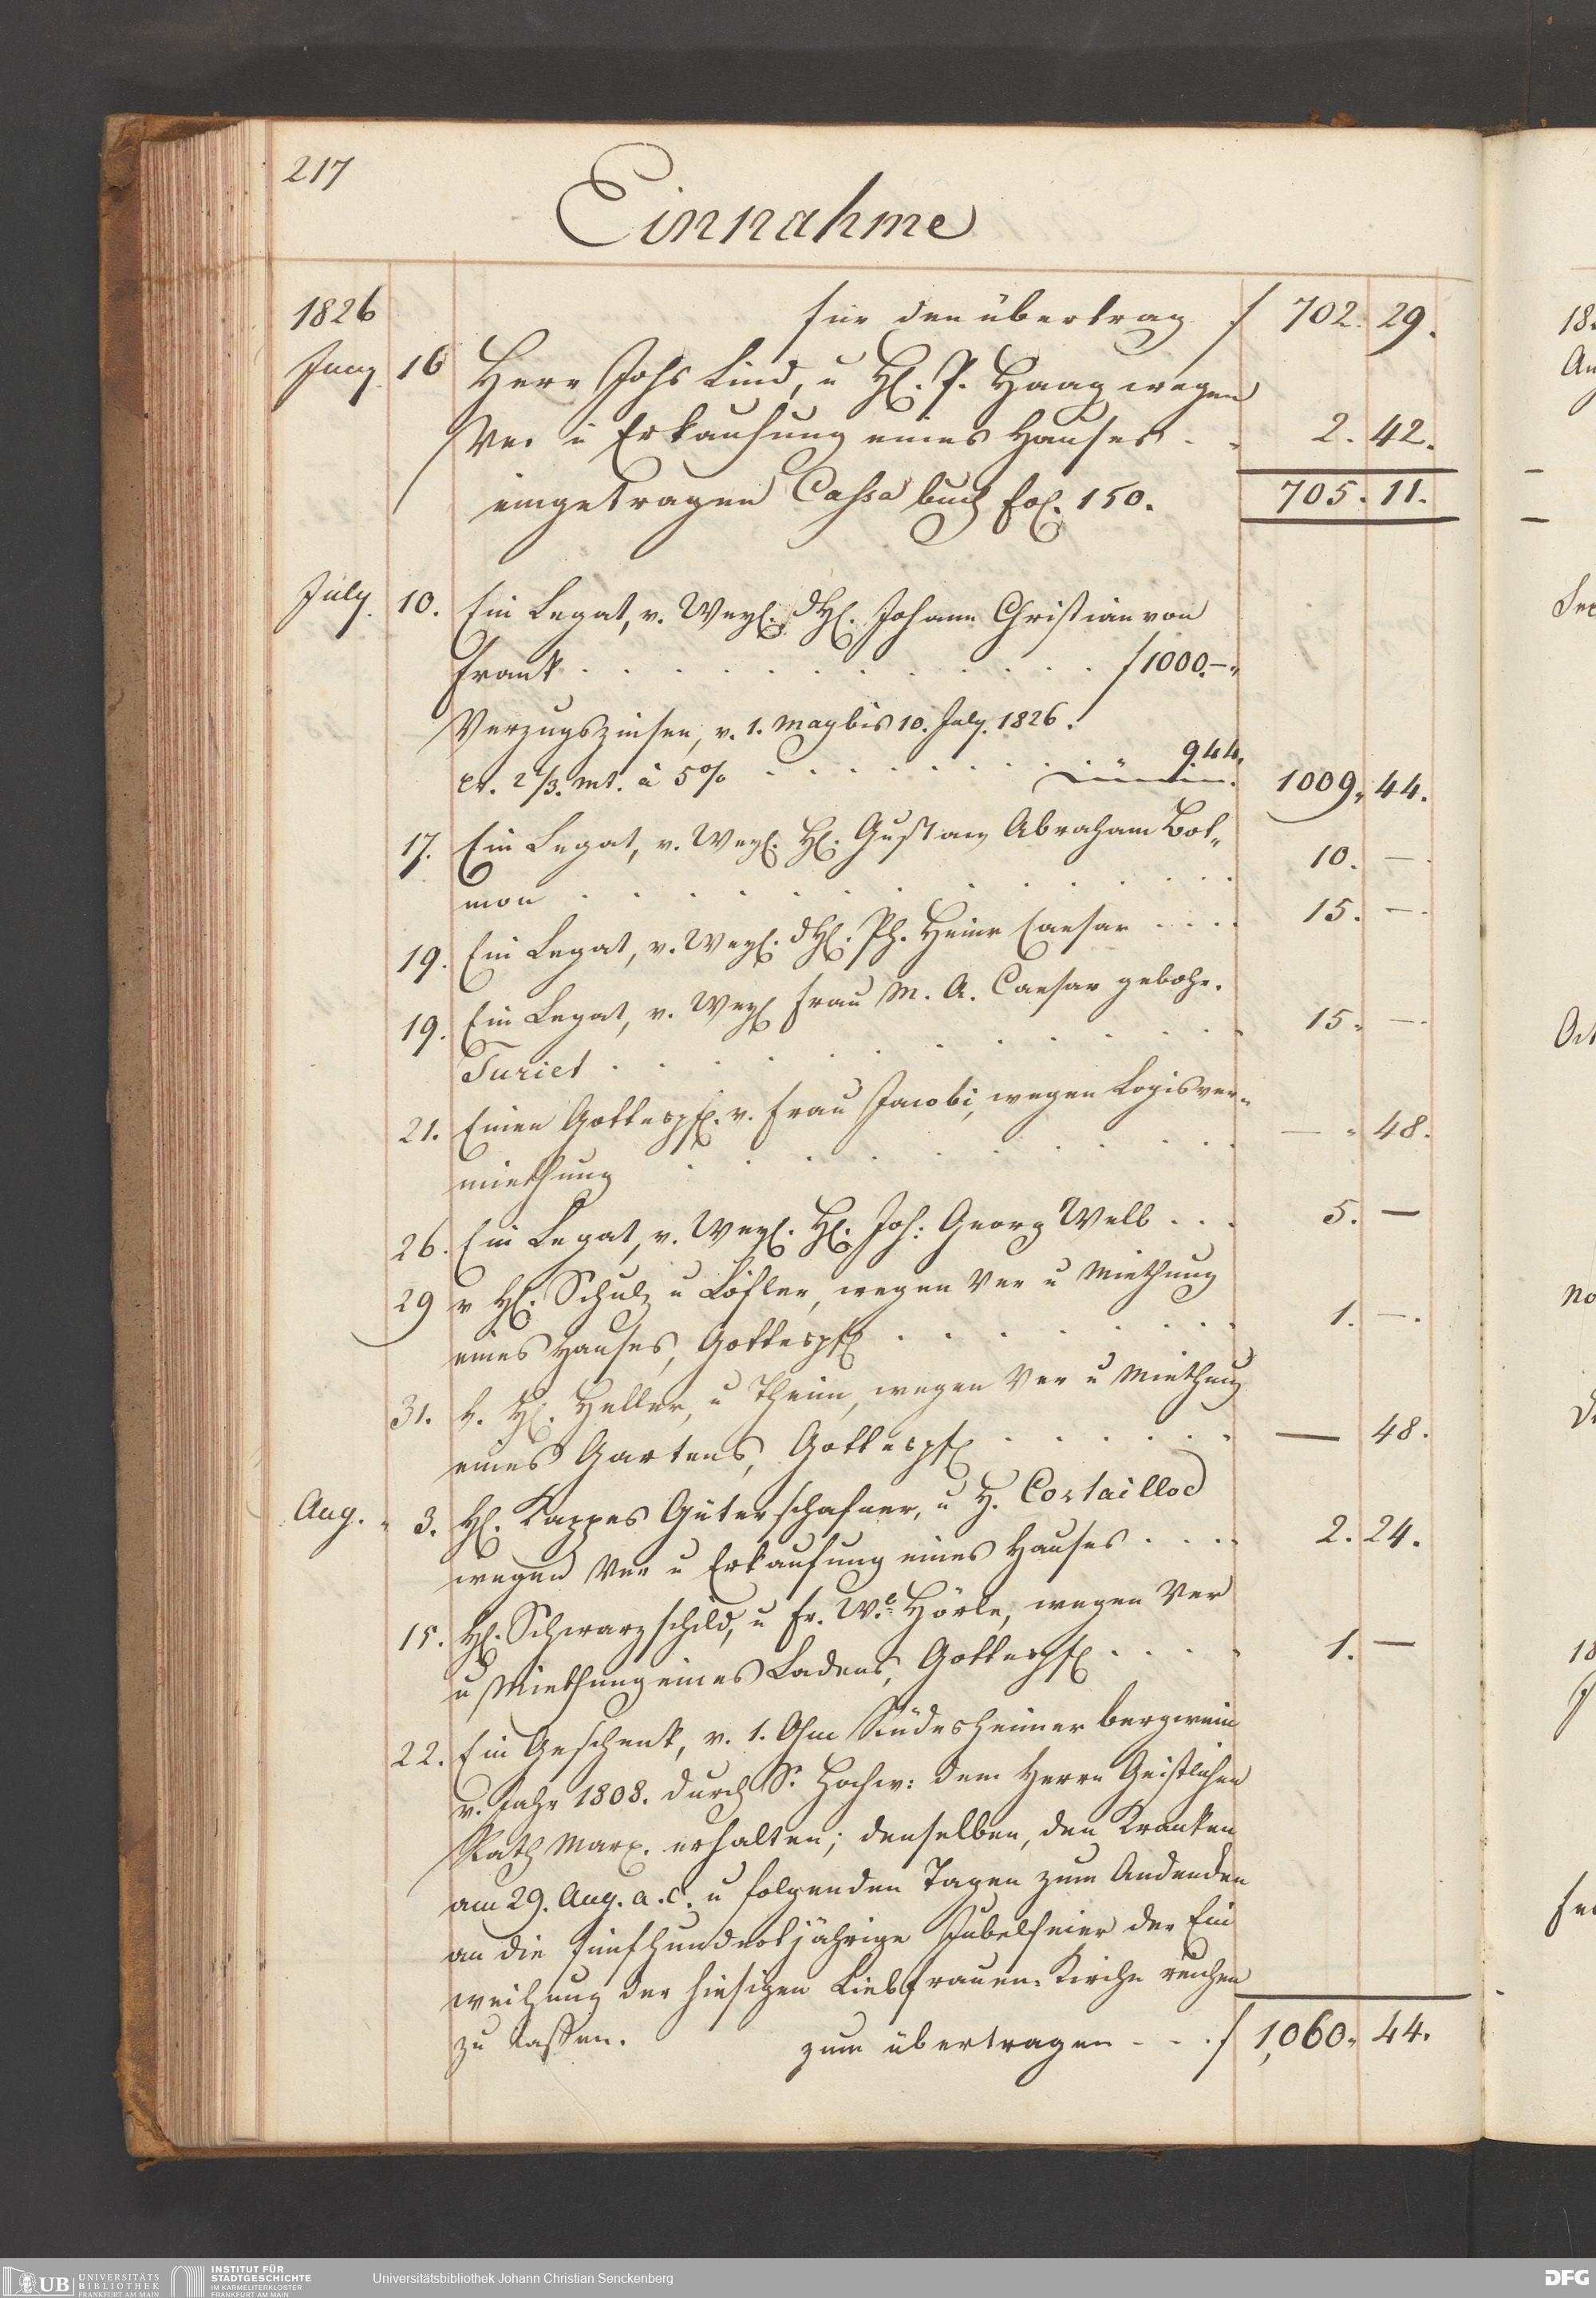 217
Einnahme
1826 für den übertrag f 702. 29.
Juny 16 Herr Johs Lind, u H. P. Haag wegen
Ver u Erkaufung eines Hauses . . 2. 42.
eingetragen Cassa buch fol. 150. 705. 11.
July. 10. Ein Legat, v. Weyl. H. Johann Christian von
Frank . . . . . . . . . . f 1000.–
Verzugszinsen, v. 1. May bis 10. July. 1826.
pr. 2 1/3. mt. à 5% . . . . . . . . 9.44. 1009. 44.
17. Ein Legat, v. Weyl. H. Gustav Abraham Bol„
mon . . . . . . . . . . 10. —.
19. Ein Legat, v. Weyl. H. Ph. Heinr Caesar . . . . 15. —.
19. Ein Legat, v. Weyl Frau M. A. Caesar gebohr.
Turiet . . . . . . . . . . 15. —.
21. Einen Gottespf. v. Frau Jacobi, wegen Logisver„
miethung . . . . . . . . . — . 48.
26. Ein Legat, v. Weyl. H. Joh: Georg Welb . . . 5. —
29 v H. Schulz u Löfler, wegen Ver u Miethung
eines Hauses, Gottespf . . . . . . . 1. —.
31. v. H. Heller, u Theim, wegen Ver u Miethung
eines Gartens, Gottespf . . . . . . — 48.
Aug. 3. H. Kappes Güterschafner, u H. Cortaillod
wegen Ver u Erkaufung eines Hauses . . . . 2. 24.
15. H. Schwarzschild, u Fr. We. Hörle, wegen Ver
u Miethung eines Ladens, Gottespf . . . . 1. —
22. Ein Geschenk, v. 1. Ohm Rüdesheimer bergwein
v. Jahr 1808. durch S. Hochw: dem Herrn Geistlichen
Rath Marx. erhalten; denselben, den Kranken
am 29. Aug. a. c. u folgenden Tagen zum Andenken
an die fünfhundertjährige Jubelfeier der Ein
weihung der hiesigen Liebfrauen-Kirche reichen
zu lassen. zum übertragen . . . f 1,060. 44.
UB UNIVERSITÄTS
BIBLIOTHEK
FRANKFURT AM MAIN
INSTITUT FÜR
STADTGESCHICHTE
IM KARMELITERKLOSTER
FRANKFURT AM MAIN
Universitätsbibliothek Johann Christian Senckenberg
DFG